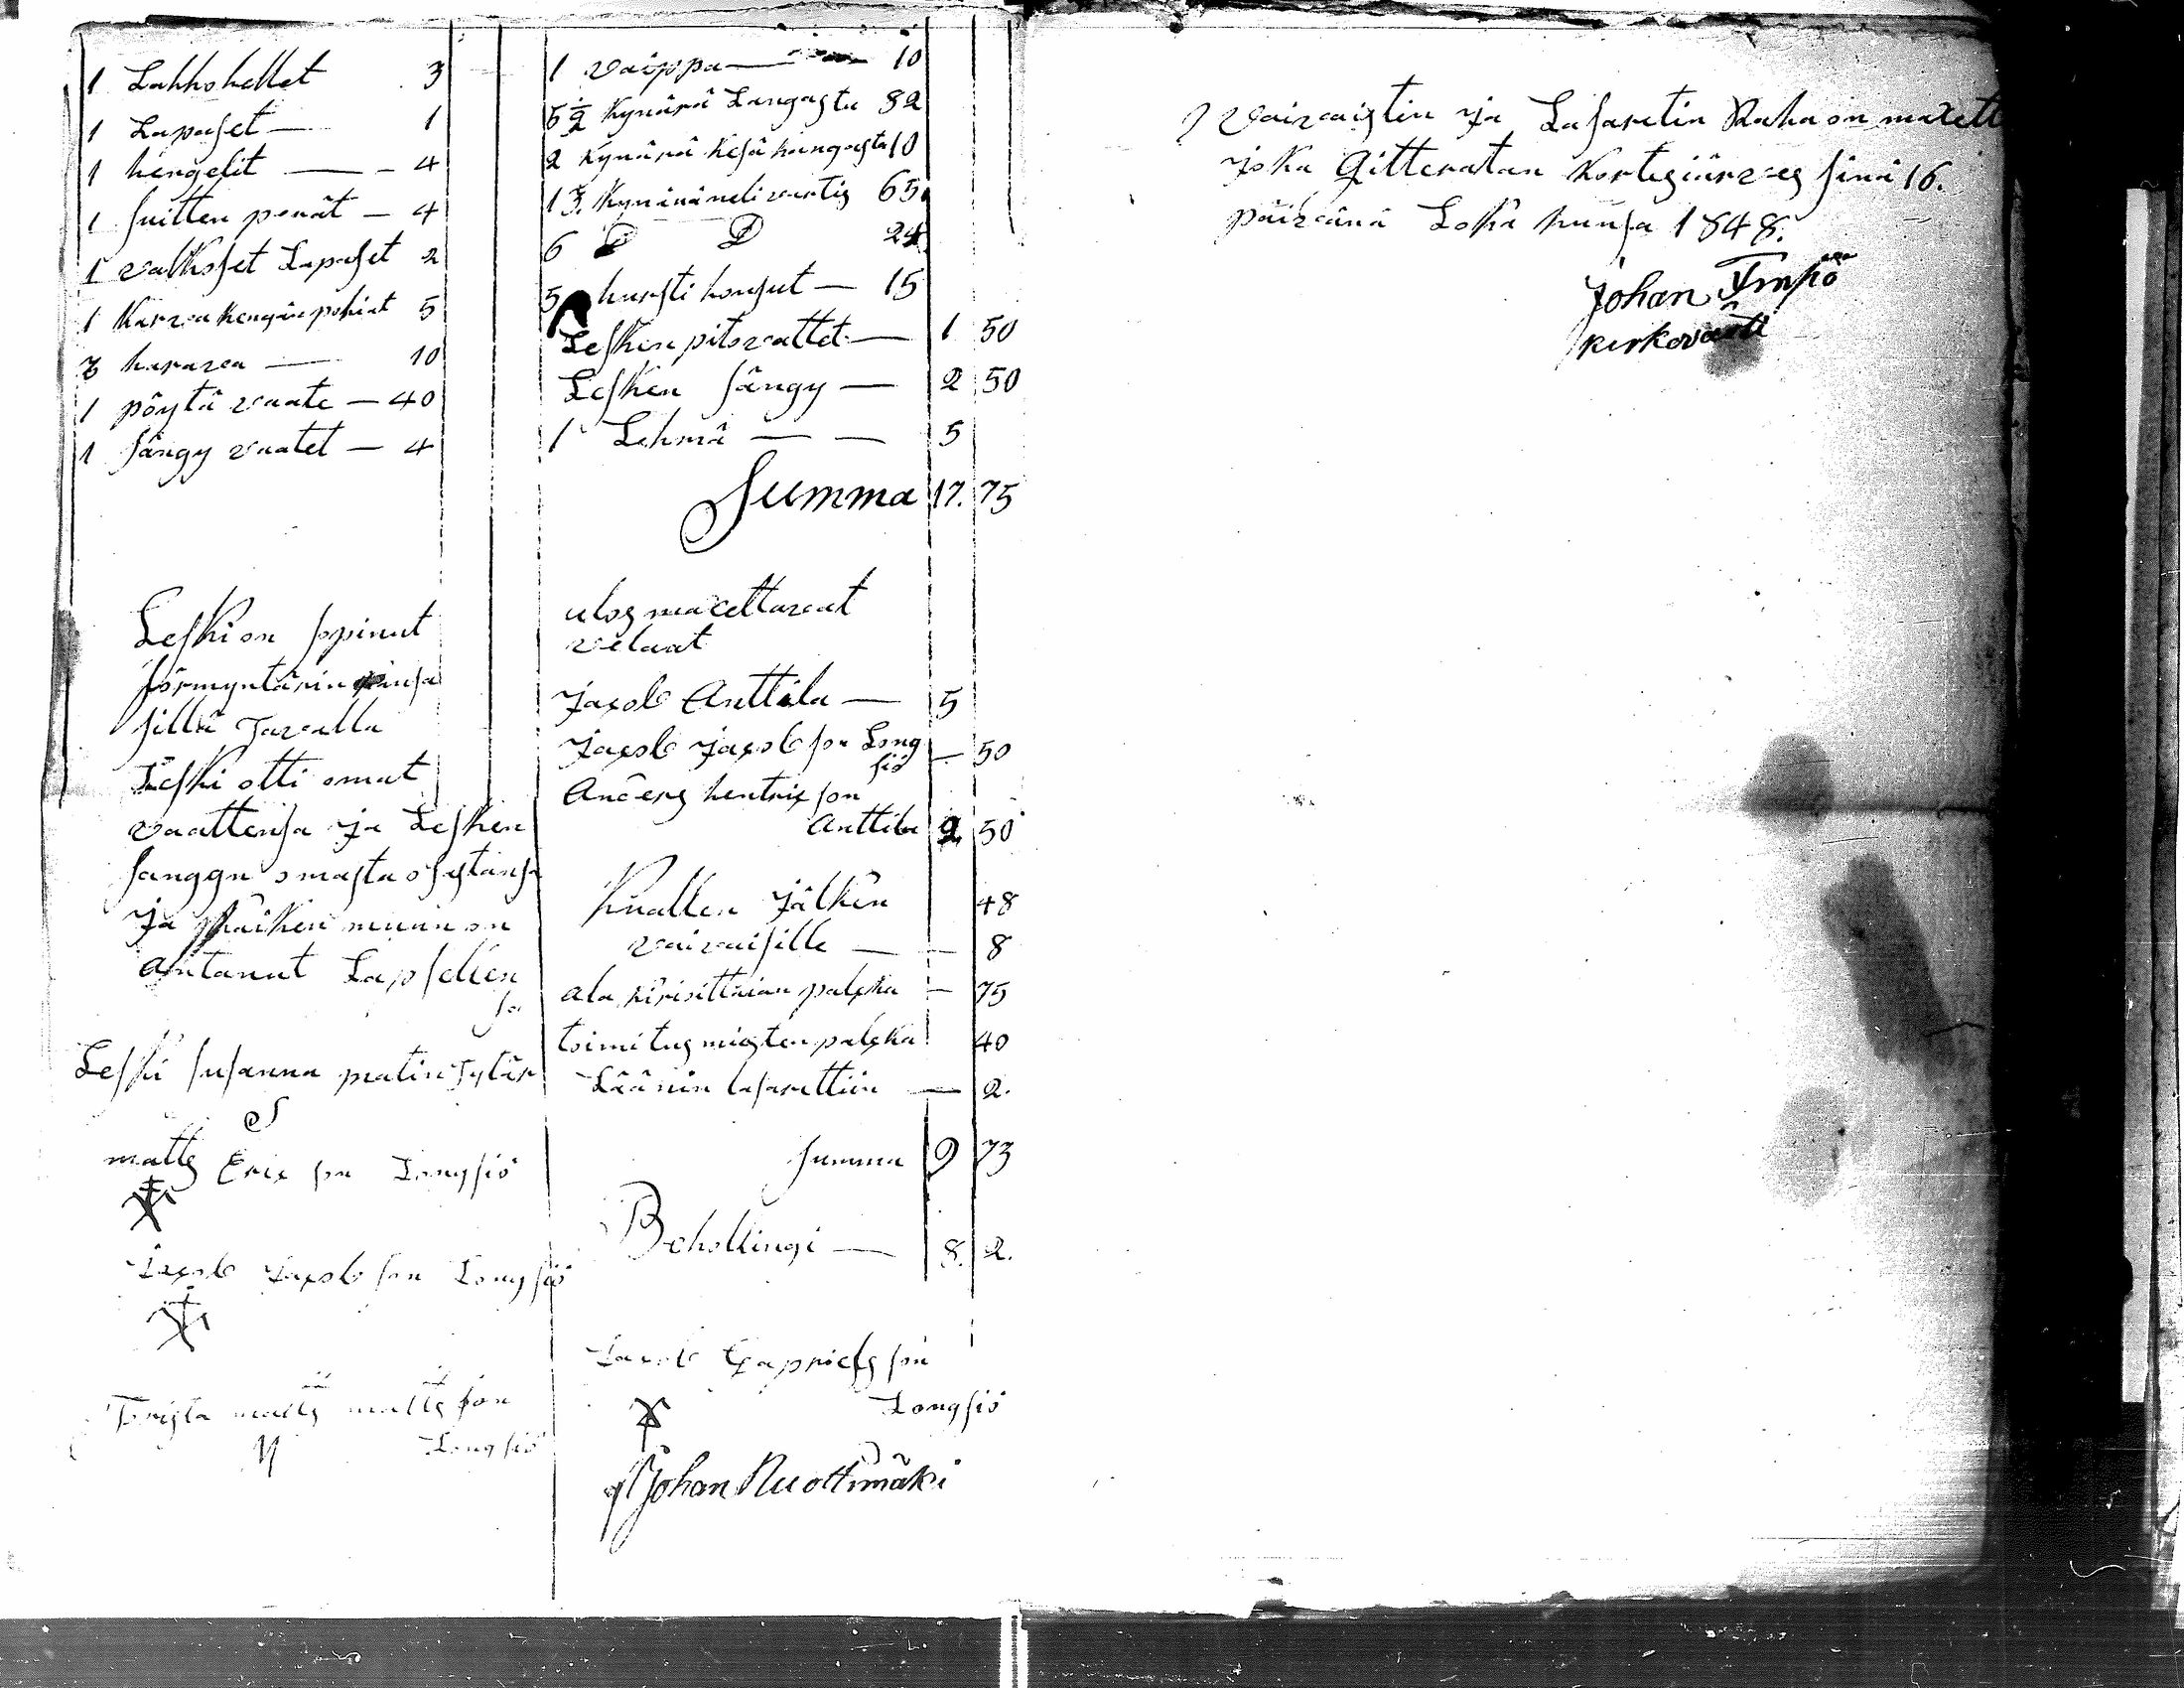 1 Lakkokellet 3
1 Lapaset — 1
1 kengelit — 4
1 suitten perät — 4
1 valkoset Lapaset 2
1 Karva kengän pohiat 5
3 harava — 10
1 pöytä vaate — 40
1 sängy vaatet — 4
Leski on sopinut
förmyntärin
sillä Tavalla
Leski otti omat
vaattensa ja Lesken
sänggn omasta osastansa
ja Kaiken muun on
antanut Lapsellen
sa
Leski Susanna matin Tytär
matts Erix son Longsiö
Jacob Jacob son Longsiö
Krista matts matts son
Longsiö
1 vaippa — 10
5 1/2 Kynärä Langasta 82
2 Kynärä Kesä kangasta 10
1 3/4 Kynärä neli vartis 65
6 D D 24
5 hursti housut — 15
Lesken pito vattet — 1 50
Lesken sängy — 2 50
1 Lehmä — — 5
Summa 17. 75
ulos maxettavat
velaat
Jacob Anttila — 5
Jacob Jacob son Long
siö — 50
Anders hentrix son
Anttila 2 50
Kuallen Jälken 48
vaivaisille — 8
ala kirioittaian palcka — 75
toimitus miesten palcka 40
Läänin lasarettiin — 2.
Summa 9 73
Behollingi — 8. 2.
Jacob Gapriels son
Longsiö
Johan Nuottimäki
Vaivaistin ja Lasaretin Raha on maxett
joka Qitteratan Kortesjärves sinä 16.
päivänä Loka kuusa 1848.
Johan Impö
kirkovärti